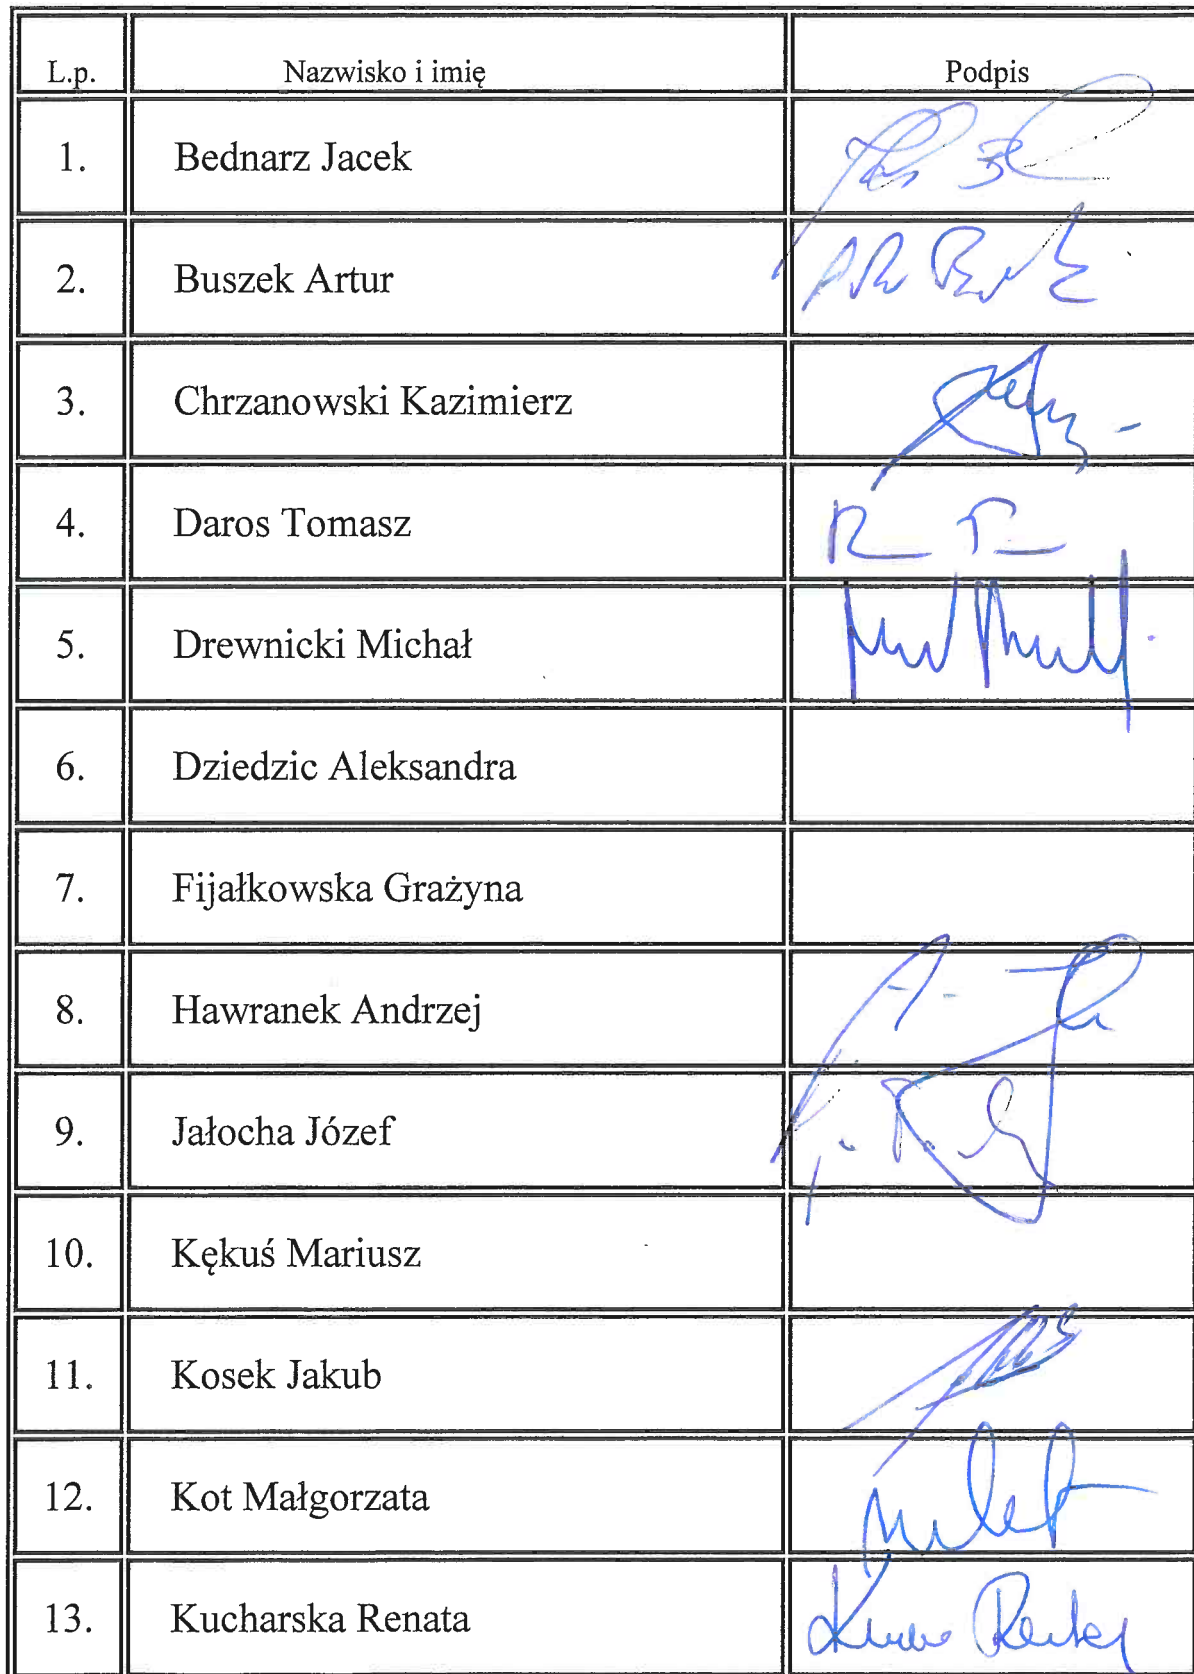 L.p. Nazwisko i imię Podpis
1. Bednarz Jacek
2. Buszek Artur
3. Chrzanowski Kazimierz
4. Daros Tomasz
5. Drewnicki Michał
6. Dziedzic Aleksandra
7. Fijałkowska Grażyna
8. Hawranek Andrzej
9. Jałocha Józef
10. Kękuś Mariusz
11. Kosek Jakub
12. Kot Małgorzata
13. Kucharska Renata